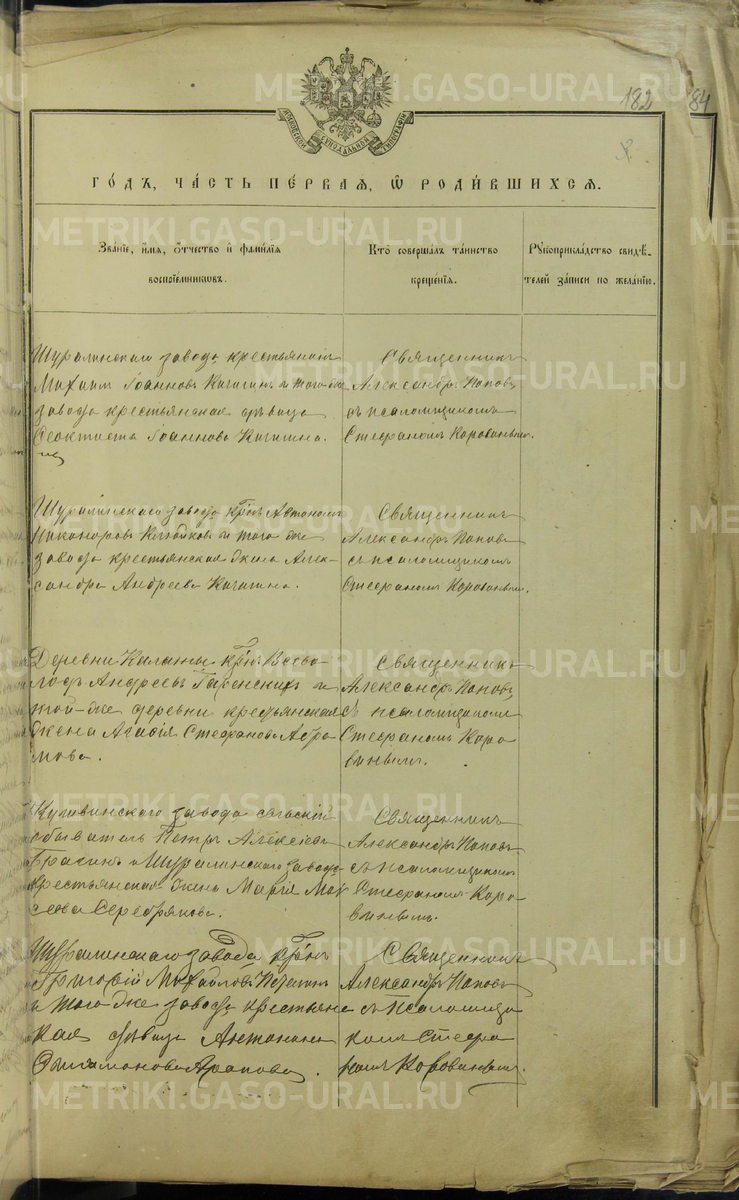 METRIKI.GASO-URAL.RU
182 84
МОСКОВСКОЙ СѴНОДАЛЬНОЙ ТИПОГРАФІИ
ГОДЪ, ЧАСТЬ ПЕРВАЯ, Ѿ РОДИВШИХСЯ.
Званіе, имя, отчество и фамилія воспріемниковъ.
Кто совершалъ таинство крещенія.
Рукоприкладство свидѣтелей записи по желанію.
Шуралинскаго завода крестьянинъ
Іоанновъ Кичигинъ и того же
завода крестьянская дѣвица
Ѳеоктиста Іоаннова Кичигина.
Священникъ
Александръ Поповъ
съ псаломщикомъ
Стефаномъ Коровинымъ.
Шуралинскаго завода крнъ Автоном
Никаноровъ и того же
завода крестьянская жена Алек-
сандра Андреева Кичигина.
Священникъ
Александръ Поповъ
съ псаломщикомъ
Стефаномъ Коровинымъ.
Деревни Калаты крнъ Всево-
лодъ Андреевъ и
той-же деревни крестьянская
жена Агафія Стефанова Абра
мова.
Священникъ
Александръ Поповъ
съ псаломщикомъ
Стефаномъ Коро
винымъ.
Кушвинскаго завода сельскій
обыватель Петръ Алексѣевъ
и Шуралинскаго завода
крестьянская жена Марія Мои
сеева Серебрякова.
Священникъ
Александръ Поповъ
съ псаломщикомъ
Стефаномъ Коро
винымъ.
Шуралинскаго завода крнъ
Григорій Михайловъ
и того же завода крестьянс
кая дѣвица Антонина
Филимонова Арапова.
Священникъ
Александръ Поповъ
съ псаломщи
комъ Стефа
номъ Коровинымъ.